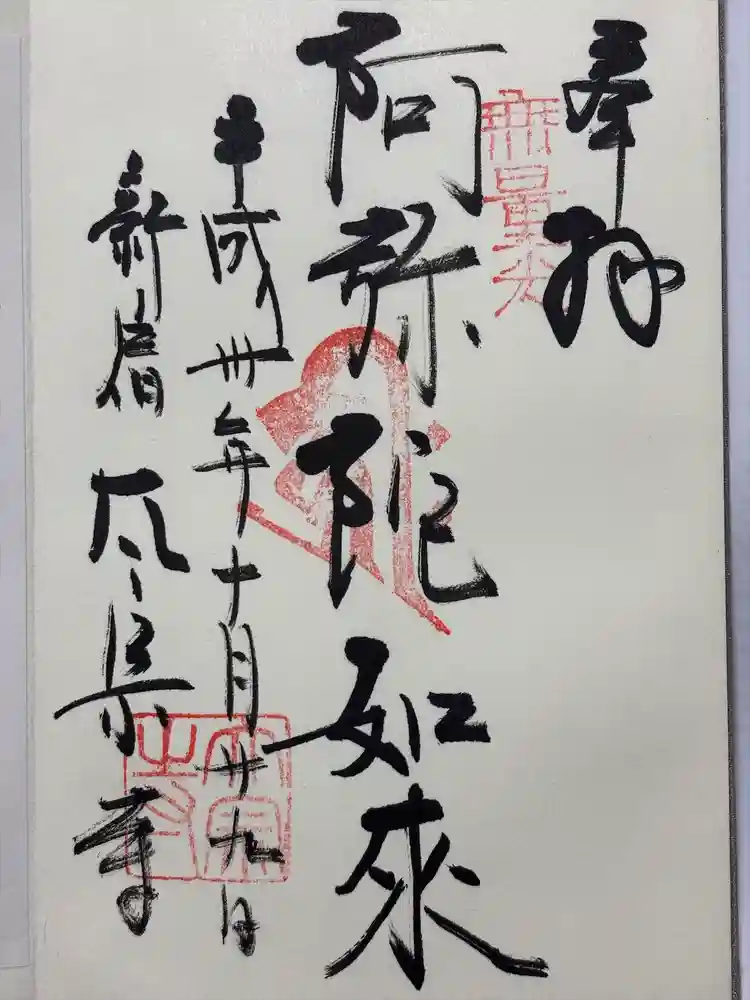 奉拝
無量光
阿弥陀如来
平成卅年十月廿九日
新宿
寺